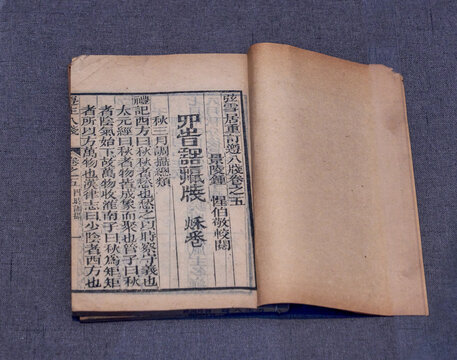 弦雪居重訂遵生八牋卷之五
景陵鍾 惺伯敬較閱
四時調攝牋 秋卷
秋三月調攝總類
禮記西方曰秋秋者愁也愁之以時察守義也
太元經曰秋者物皆成象而聚也管子曰秋
者陰氣始下故萬物收淮南子曰秋為矩矩
者所以方萬物也漢律志曰少陰者西方也
生八牋 卷之五